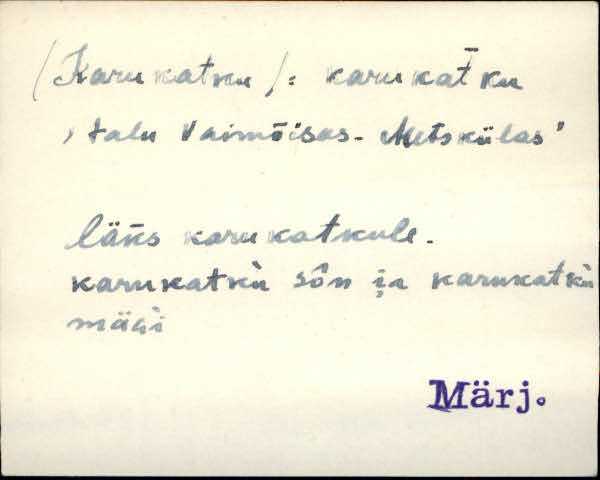 /Karukatku/: karukat̄ku
, talu Vaimõisas-Metskülas'
läks karukatkule.
karukatkù sôn ja karukatkù
mägi
Märj.